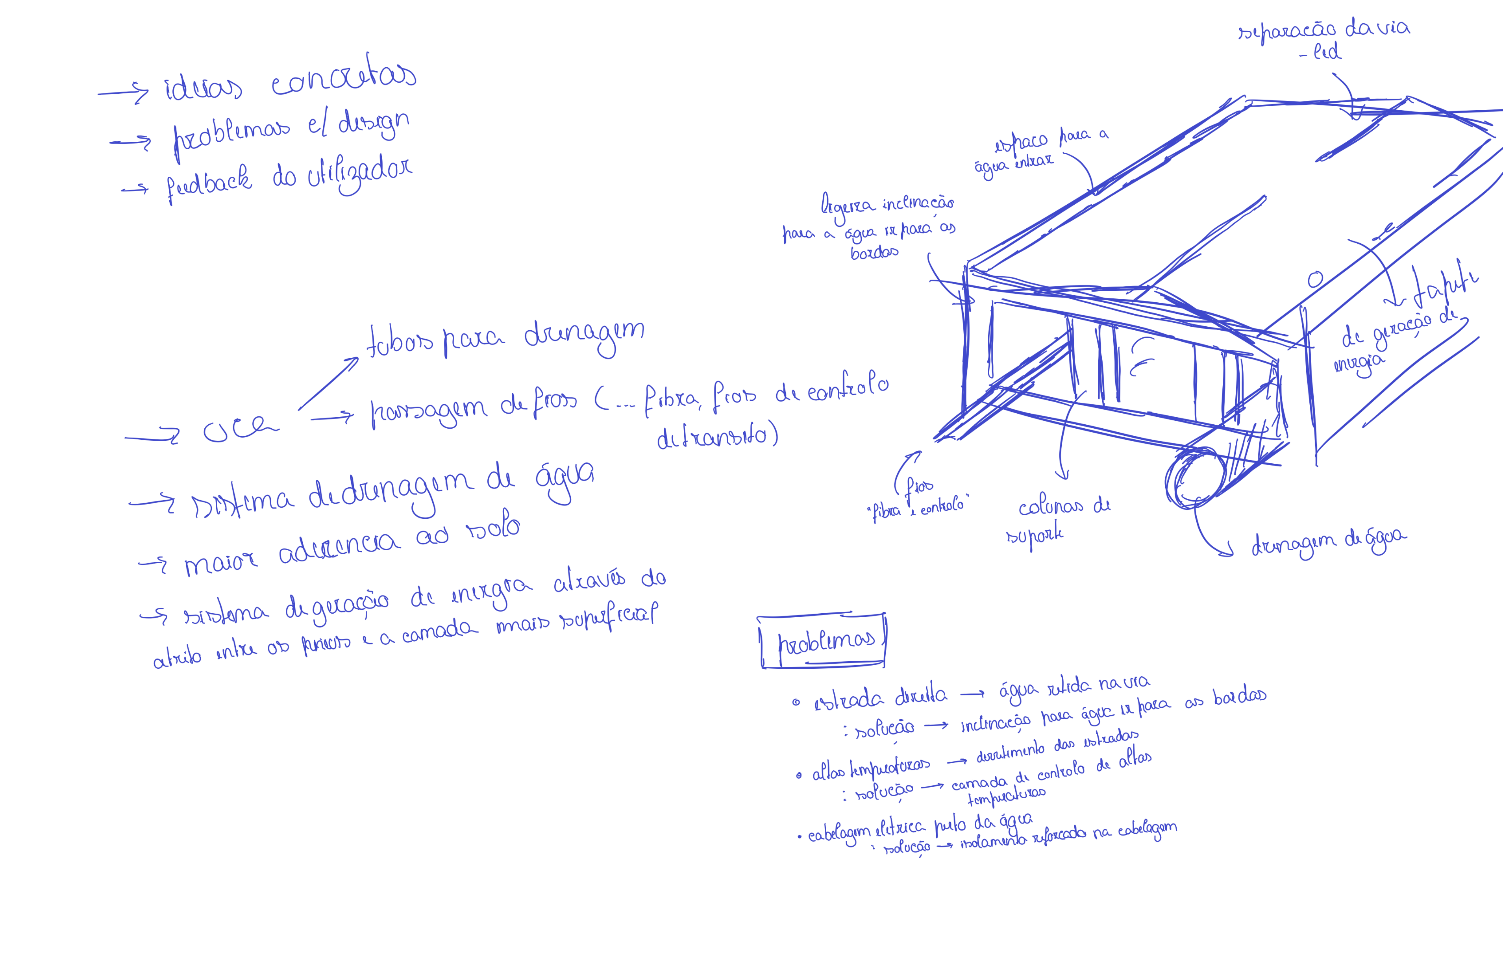 → ideias concretas
→ problemas c/ design
→ feedback do utilizador
→ oca → tubos para drenagem
→ passagem de fios (... fibra, fios de controlo
de transito)
→ sistema de drenagem de água
→ maior aderencia ao solo
→ sistema de geração de energia através do
atrito entre os pneus e a camada mais superficial
separacão da via
- led
espaco para a
água entrar
ligeira inclinação
para a água ir para as
bordas
tapete
de geração de
energia
fios
"fibra e controlo"
colunas de
suporte
drenagem de água
problemas
• estrada direita → água retida na via
: solução → inclinação para água ir para as bordas
• altas temperaturas → derretimento das estradas
: solução → camada de controlo de altas
temperaturas
• cabelagem eletrica perto da água
: solução → isolamento reforcado na cabelagem